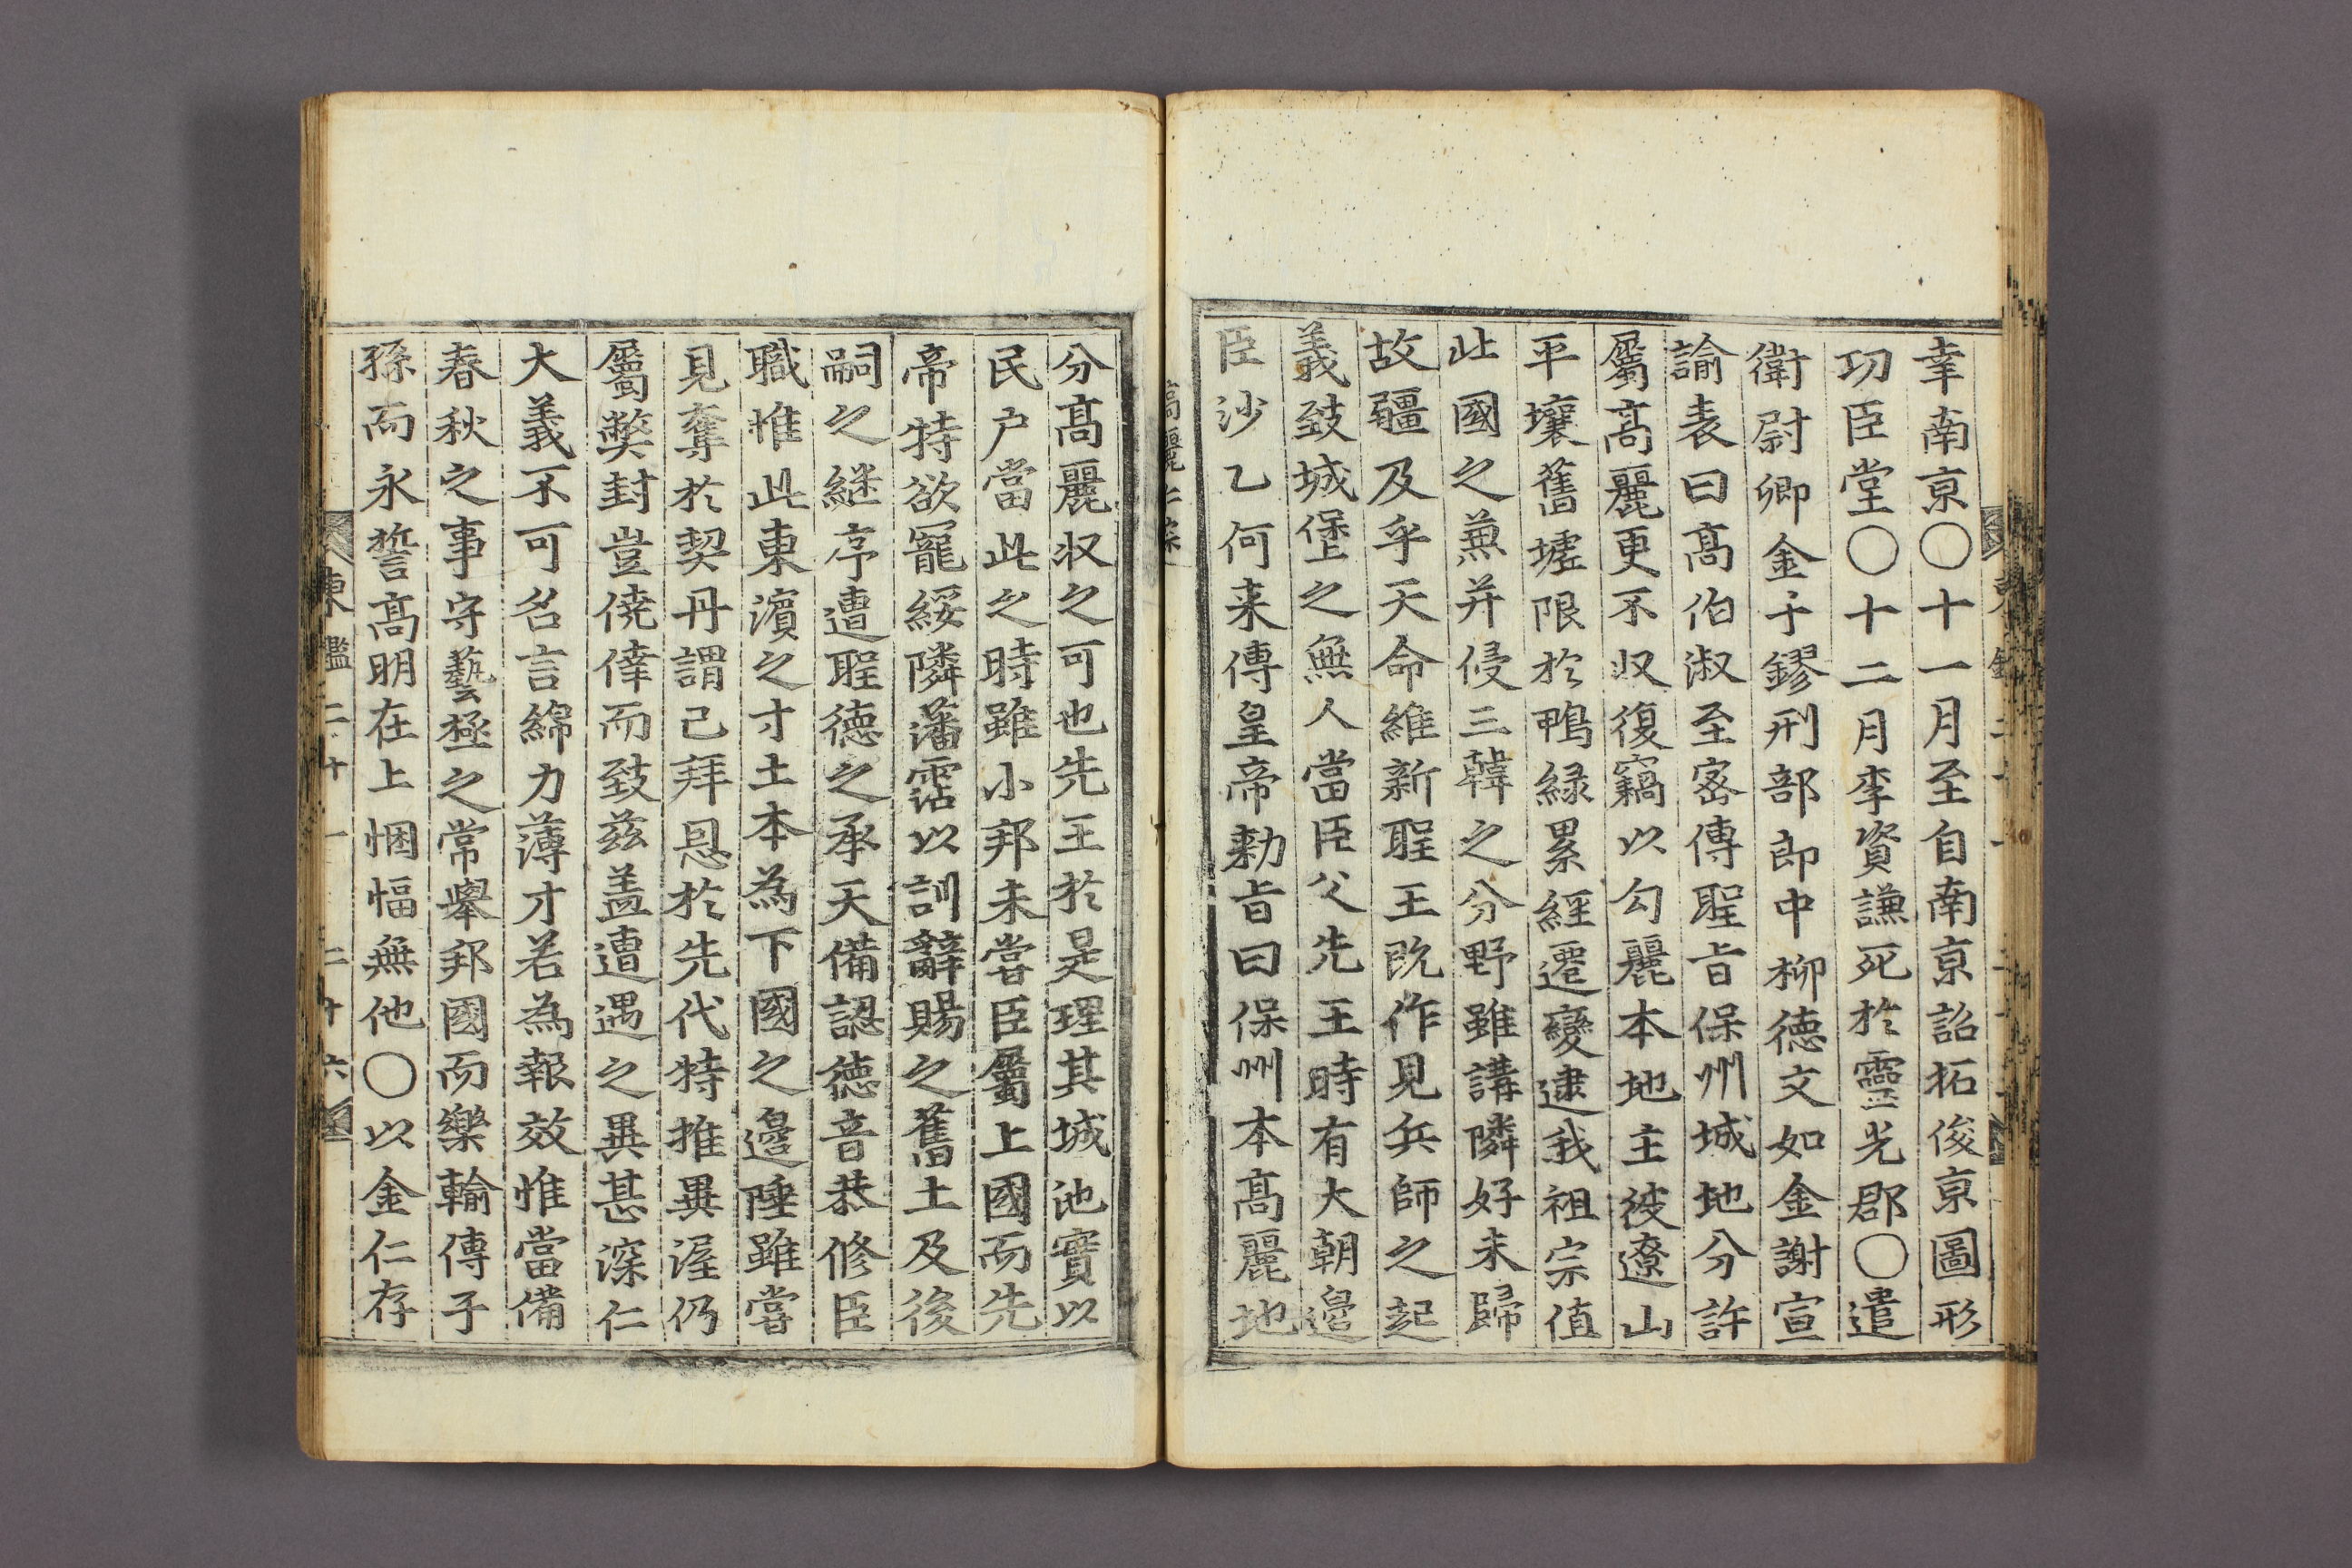 幸南京○十一月至自南京詔拓俊京圖形
功臣堂○十二月李資謙死於靈光郡○遣
衛尉卿金子鏐刑部郎中柳德文如金謝宣
諭表曰高伯淑至密傳聖旨保州城地分許
屬高麗更不収復竊以勾麗本地主彼遼山
平壤舊墟限於鴨緑累經遷變逮我祖宗值
此國之兼并侵三韓之分野雖講隣好未歸
故疆及乎天命維新聖王既作見兵師之起
義致城堡之無人當臣父先王時有大朝邊
臣沙乙何来傳皇帝勅旨曰保州本高麗地
高麗仁宗
分高麗収之可也先王於是理其城池實以
民户當此之時雖小邦未嘗臣屬上國而先
帝特欲寵綏隣藩霑以訓辭賜之舊土及後
嗣之継序遭聖德之承天備認德音恭修臣
職惟此東濵之寸土本為下國之邊陲雖嘗
見奪於契丹謂已拜恩於先代特推異渥仍
屬弊封豈僥倖而致兹盖遭遇之異甚深仁
大義不可名言綿力薄才若為報效惟當備
春秋之事守藝極之常舉邦國而樂輸傳子
孫而永誓高明在上悃愊無他○以金仁存
東鑑二十一 二十六